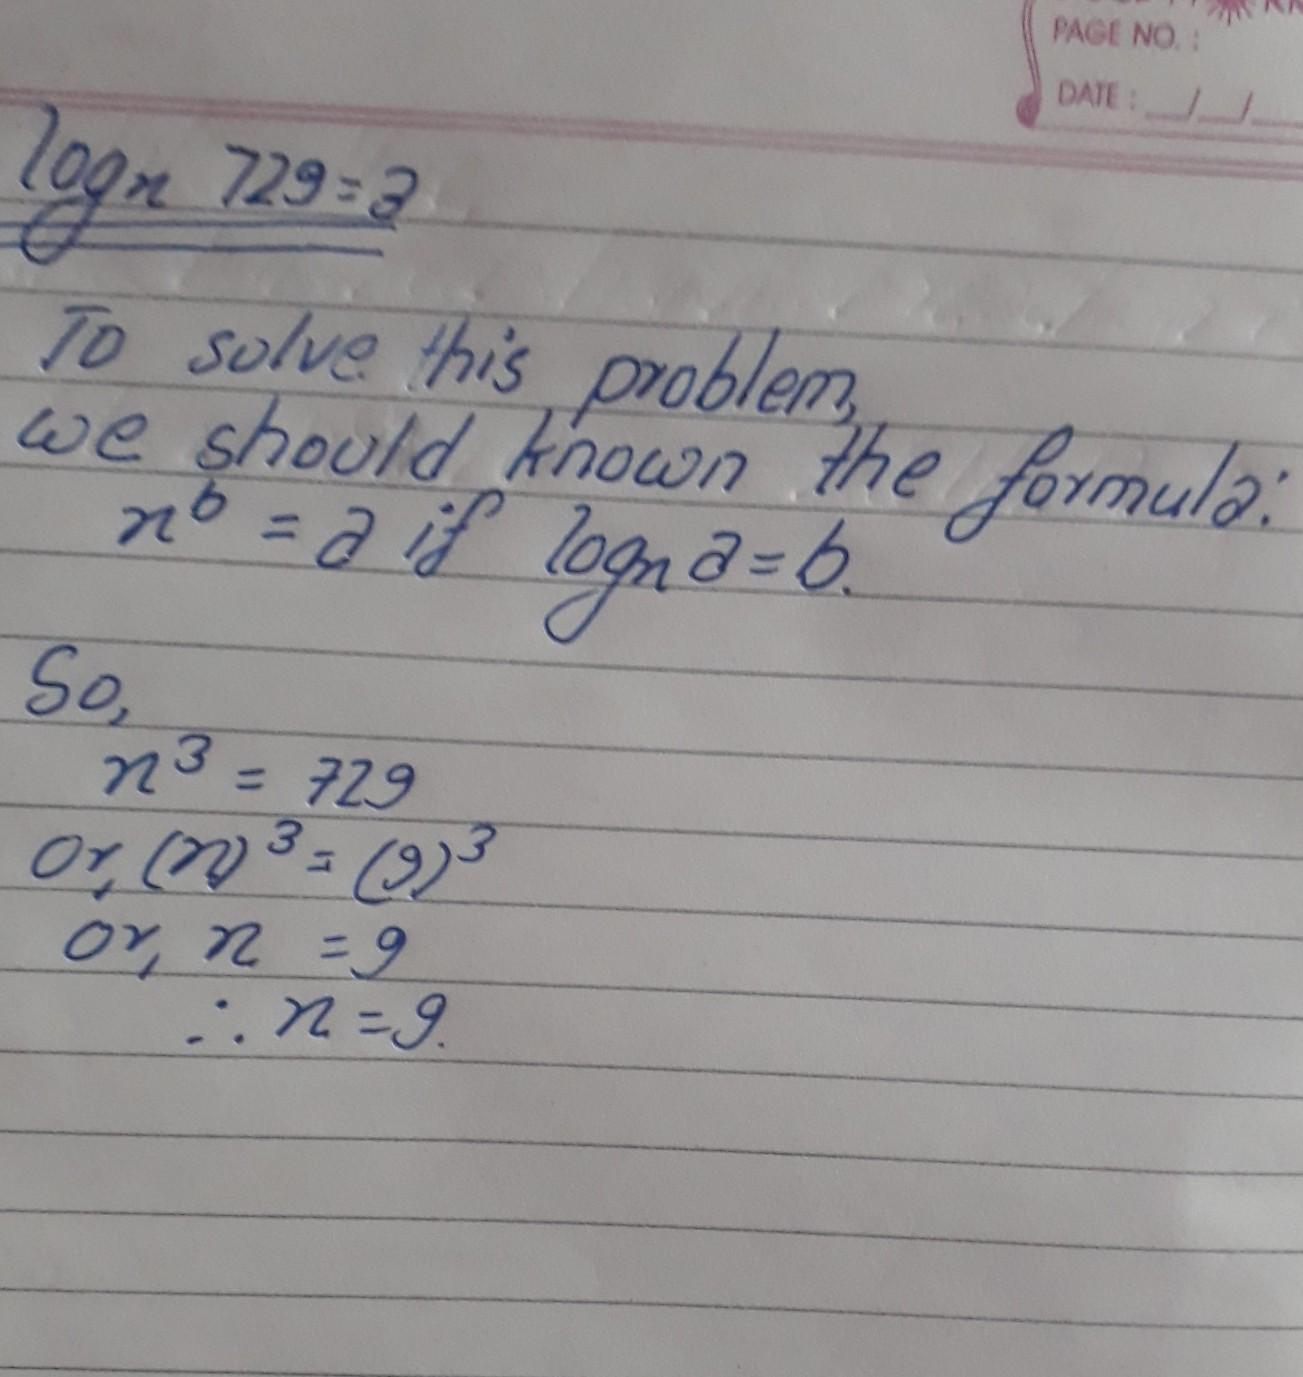 PAGE NO. :
DATE : __/__/__
logx 729=3
To solve this problem,
we should known the formula:
x^b = a if logx a=b.
So,
x^3 = 729
or, (x)^3 = (9)^3
or, x = 9
∴ x = 9.